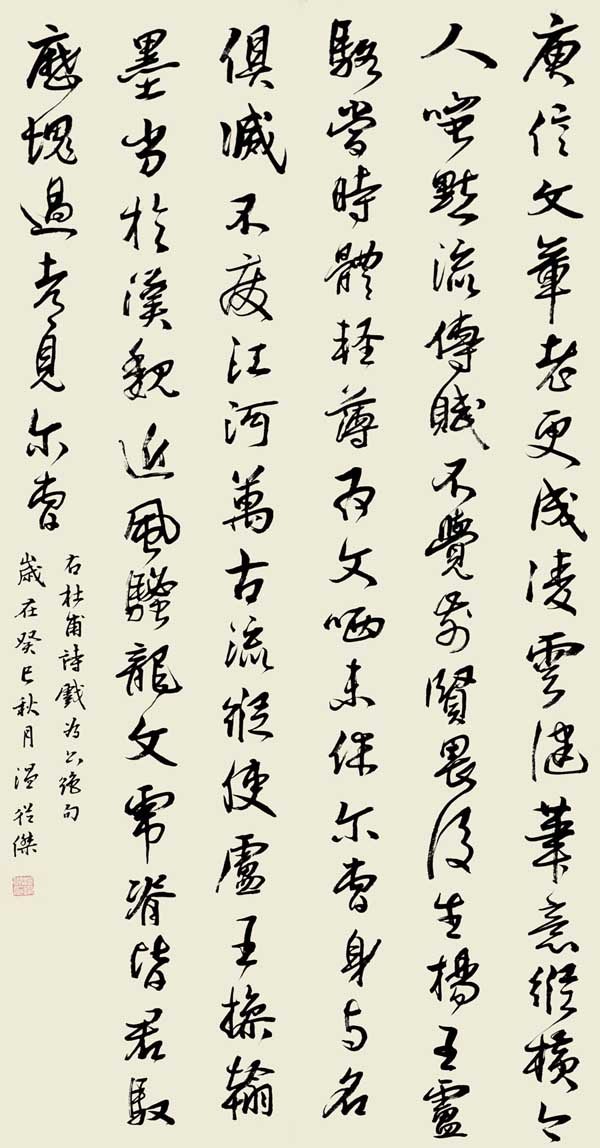 庾信文章老更成凌雲健筆意縱橫今
人嗤點流傳賦不覺前賢畏後生楊王盧
駱當時體軽薄為文哂未休尔曹身与名
俱滅不廢江河萬古流縱使盧王操翰
墨劣於漢魏近風騷龍文虎脊皆君馭
歷塊過都見尔曹
右杜甫詩戲為六絕句
歲在癸巳秋月温傑